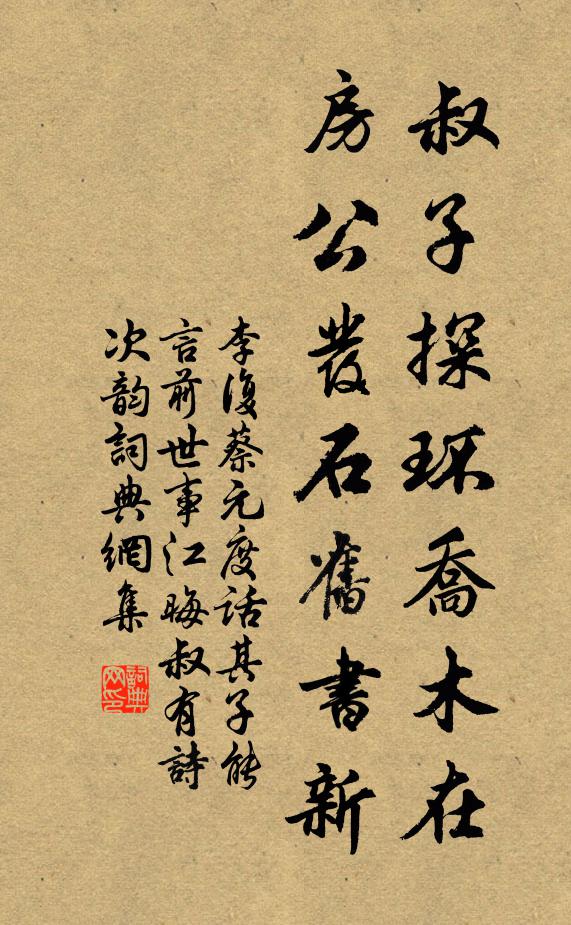 叔子探环喬木在
房公發石舊書新
李復蔡元度話其子能
言前世事江晦叔有詩
次韵詞典網集
詞典网印